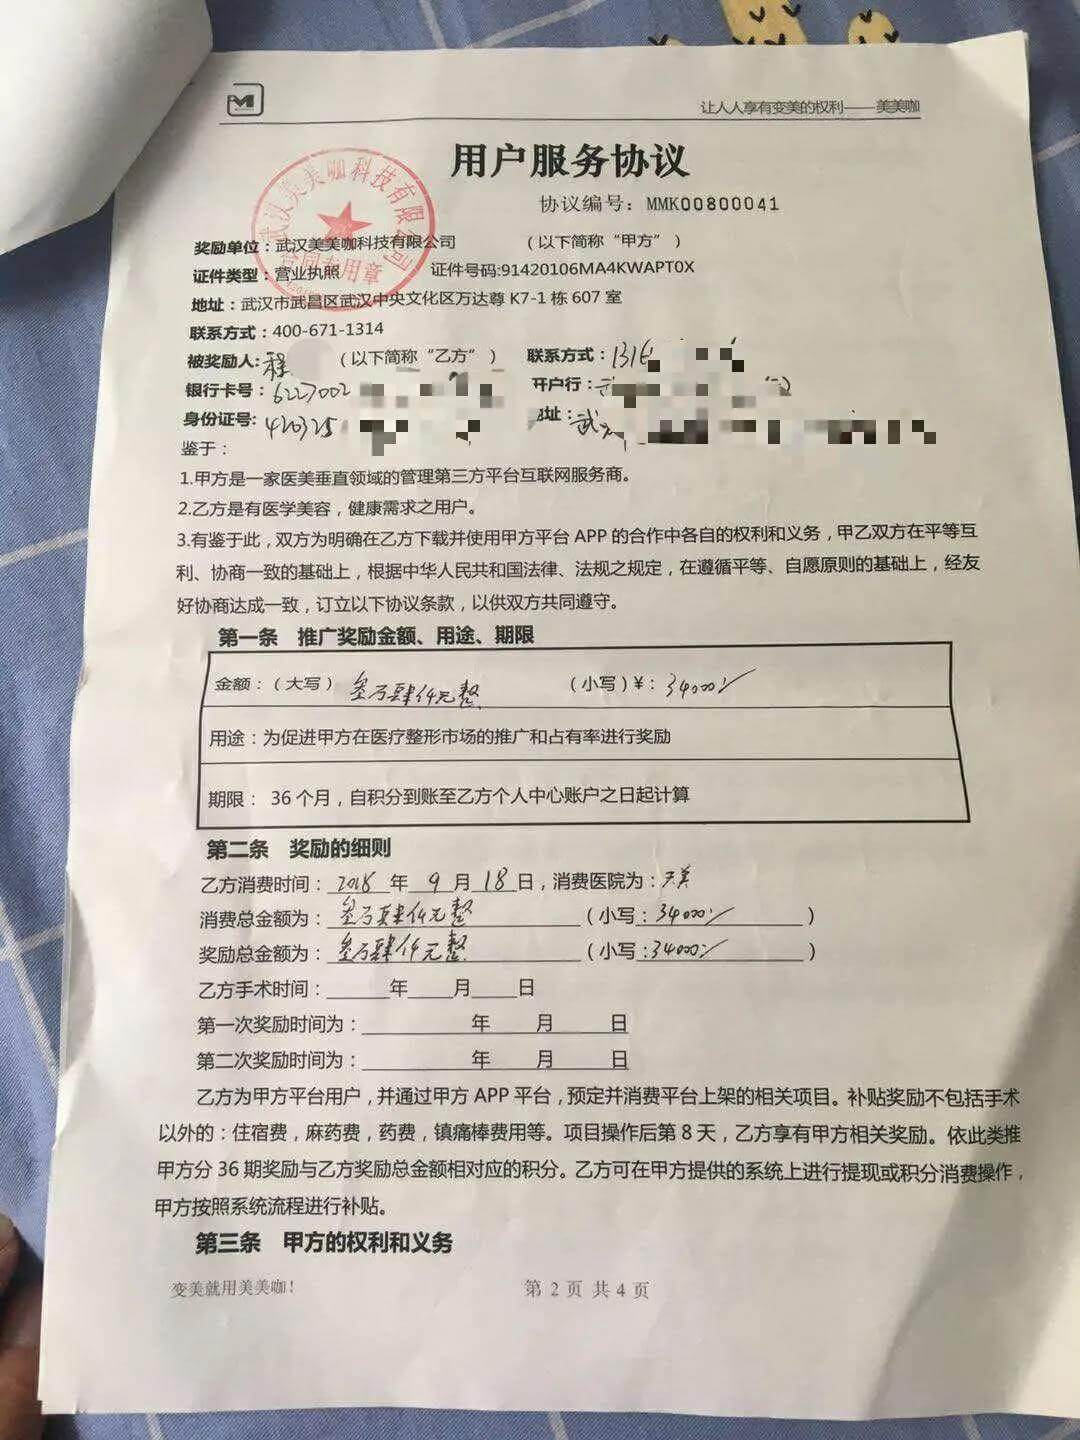 让人人享有变美的权利——美美咖
用户服务协议
协议编号：MMK00800041
武汉美美咖科技有限公司
合同专用章
奖励单位：武汉美美咖科技有限公司 （以下简称“甲方”）
证件类型：营业执照 证件号码:91420106MA4KWAPT0X
地址：武汉市武昌区武汉中央文化区万达尊 K7-1 栋 607 室
联系方式：400-671-1314
被奖励人:程 （以下简称“乙方”） 联系方式：1316
银行卡号：6227002 开户行：
身份证号:420325 地址：武
鉴于：
1.甲方是一家医美垂直领域的管理第三方平台互联网服务商。
2.乙方是有医学美容，健康需求之用户。
3.有鉴于此，双方为明确在乙方下载并使用甲方平台 APP 的合作中各自的权利和义务，甲乙双方在平等互
利、协商一致的基础上，根据中华人民共和国法律、法规之规定，在遵循平等、自愿原则的基础上，经友
好协商达成一致，订立以下协议条款，以供双方共同遵守。
第一条 推广奖励金额、用途、期限
金额：（大写） 叁万肆仟元整 （小写）¥： 34000
用途：为促进甲方在医疗整形市场的推广和占有率进行奖励
期限： 36 个月，自积分到账至乙方个人中心账户之日起计算
第二条 奖励的细则
乙方消费时间：2018 年 9 月 18 日，消费医院为：天美
消费总金额为：叁万肆仟元整（小写：34000）
奖励总金额为：叁万肆仟元整（小写:34000）
乙方手术时间：______年____月____日
第一次奖励时间为：__________年____月____日
第二次奖励时间为：__________年____月____日
乙方为甲方平台用户，并通过甲方 APP 平台，预定并消费平台上架的相关项目。补贴奖励不包括手术
以外的：住宿费，麻药费，药费，镇痛棒费用等。项目操作后第 8 天，乙方享有甲方相关奖励。依此类推
甲方分 36 期奖励与乙方奖励总金额相对应的积分。乙方可在甲方提供的系统上进行提现或积分消费操作，
甲方按照系统流程进行补贴。
第三条 甲方的权利和义务
变美就用美美咖！ 第 2 页 共 4 页